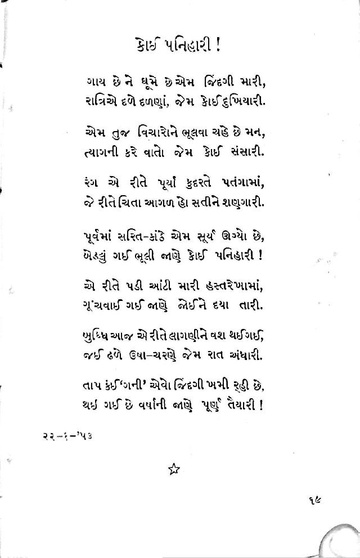 કોઈ પનિહારી !
ગાય છે ને ઘૂમે છે એમ જિંદગી મારી,
રાત્રિએ દળે દળણાં, જેમ કોઈ દુખિયારી.
એમ તુજ વિચારોને ભૂલવા ચહે છે મન,
ત્યાગની કરે વાતો જેમ કોઈ સંસારી.
રંગ એ રીતે પૂર્યા કુદરતે પતંગામાં,
જે રીતે ચિતા આગળ હો સતીને શણગારી.
પૂર્વમાં સરિત-કાંઠે એમ સૂર્ય ઊગ્યો છે,
બેડલું ગઈ ભૂલી જાણે કોઈ પનિહારી !
એ રીતે પડી આંટી મારી હસ્તરેખામાં,
ગૂંચવાઈ ગઈ જાણે જોઈને દયા તારી.
બુધ્ધિ આજ એ રીતે લાગણીને વશ થઈ ગઈ,
જઈ ઢળે ઉષા-ચરણે જેમ રાત અંધારી.
તાપ કંઈ 'ગની' એવો જિંદગી ખમી રહી છે,
થઈ ગઈ છે વર્ષાની જાણે પૂર્ણ તૈયારી !
૨૨-૬-'૫૩
૬૯